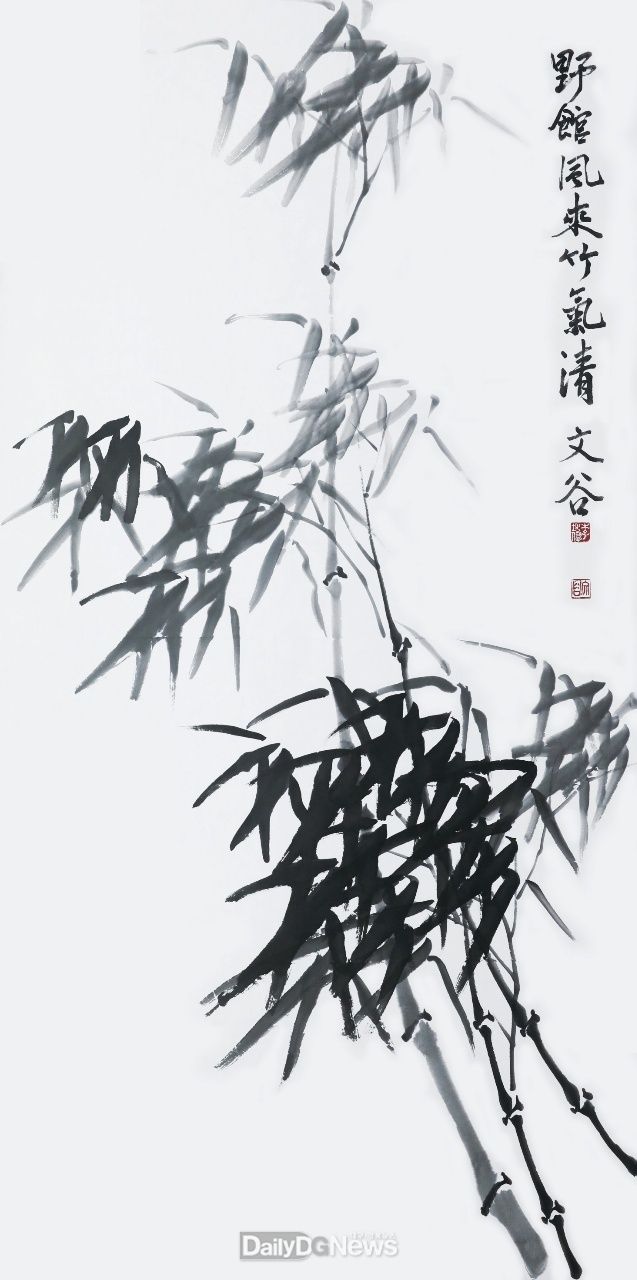 野館風來竹氣清
文谷
DailyDGNews